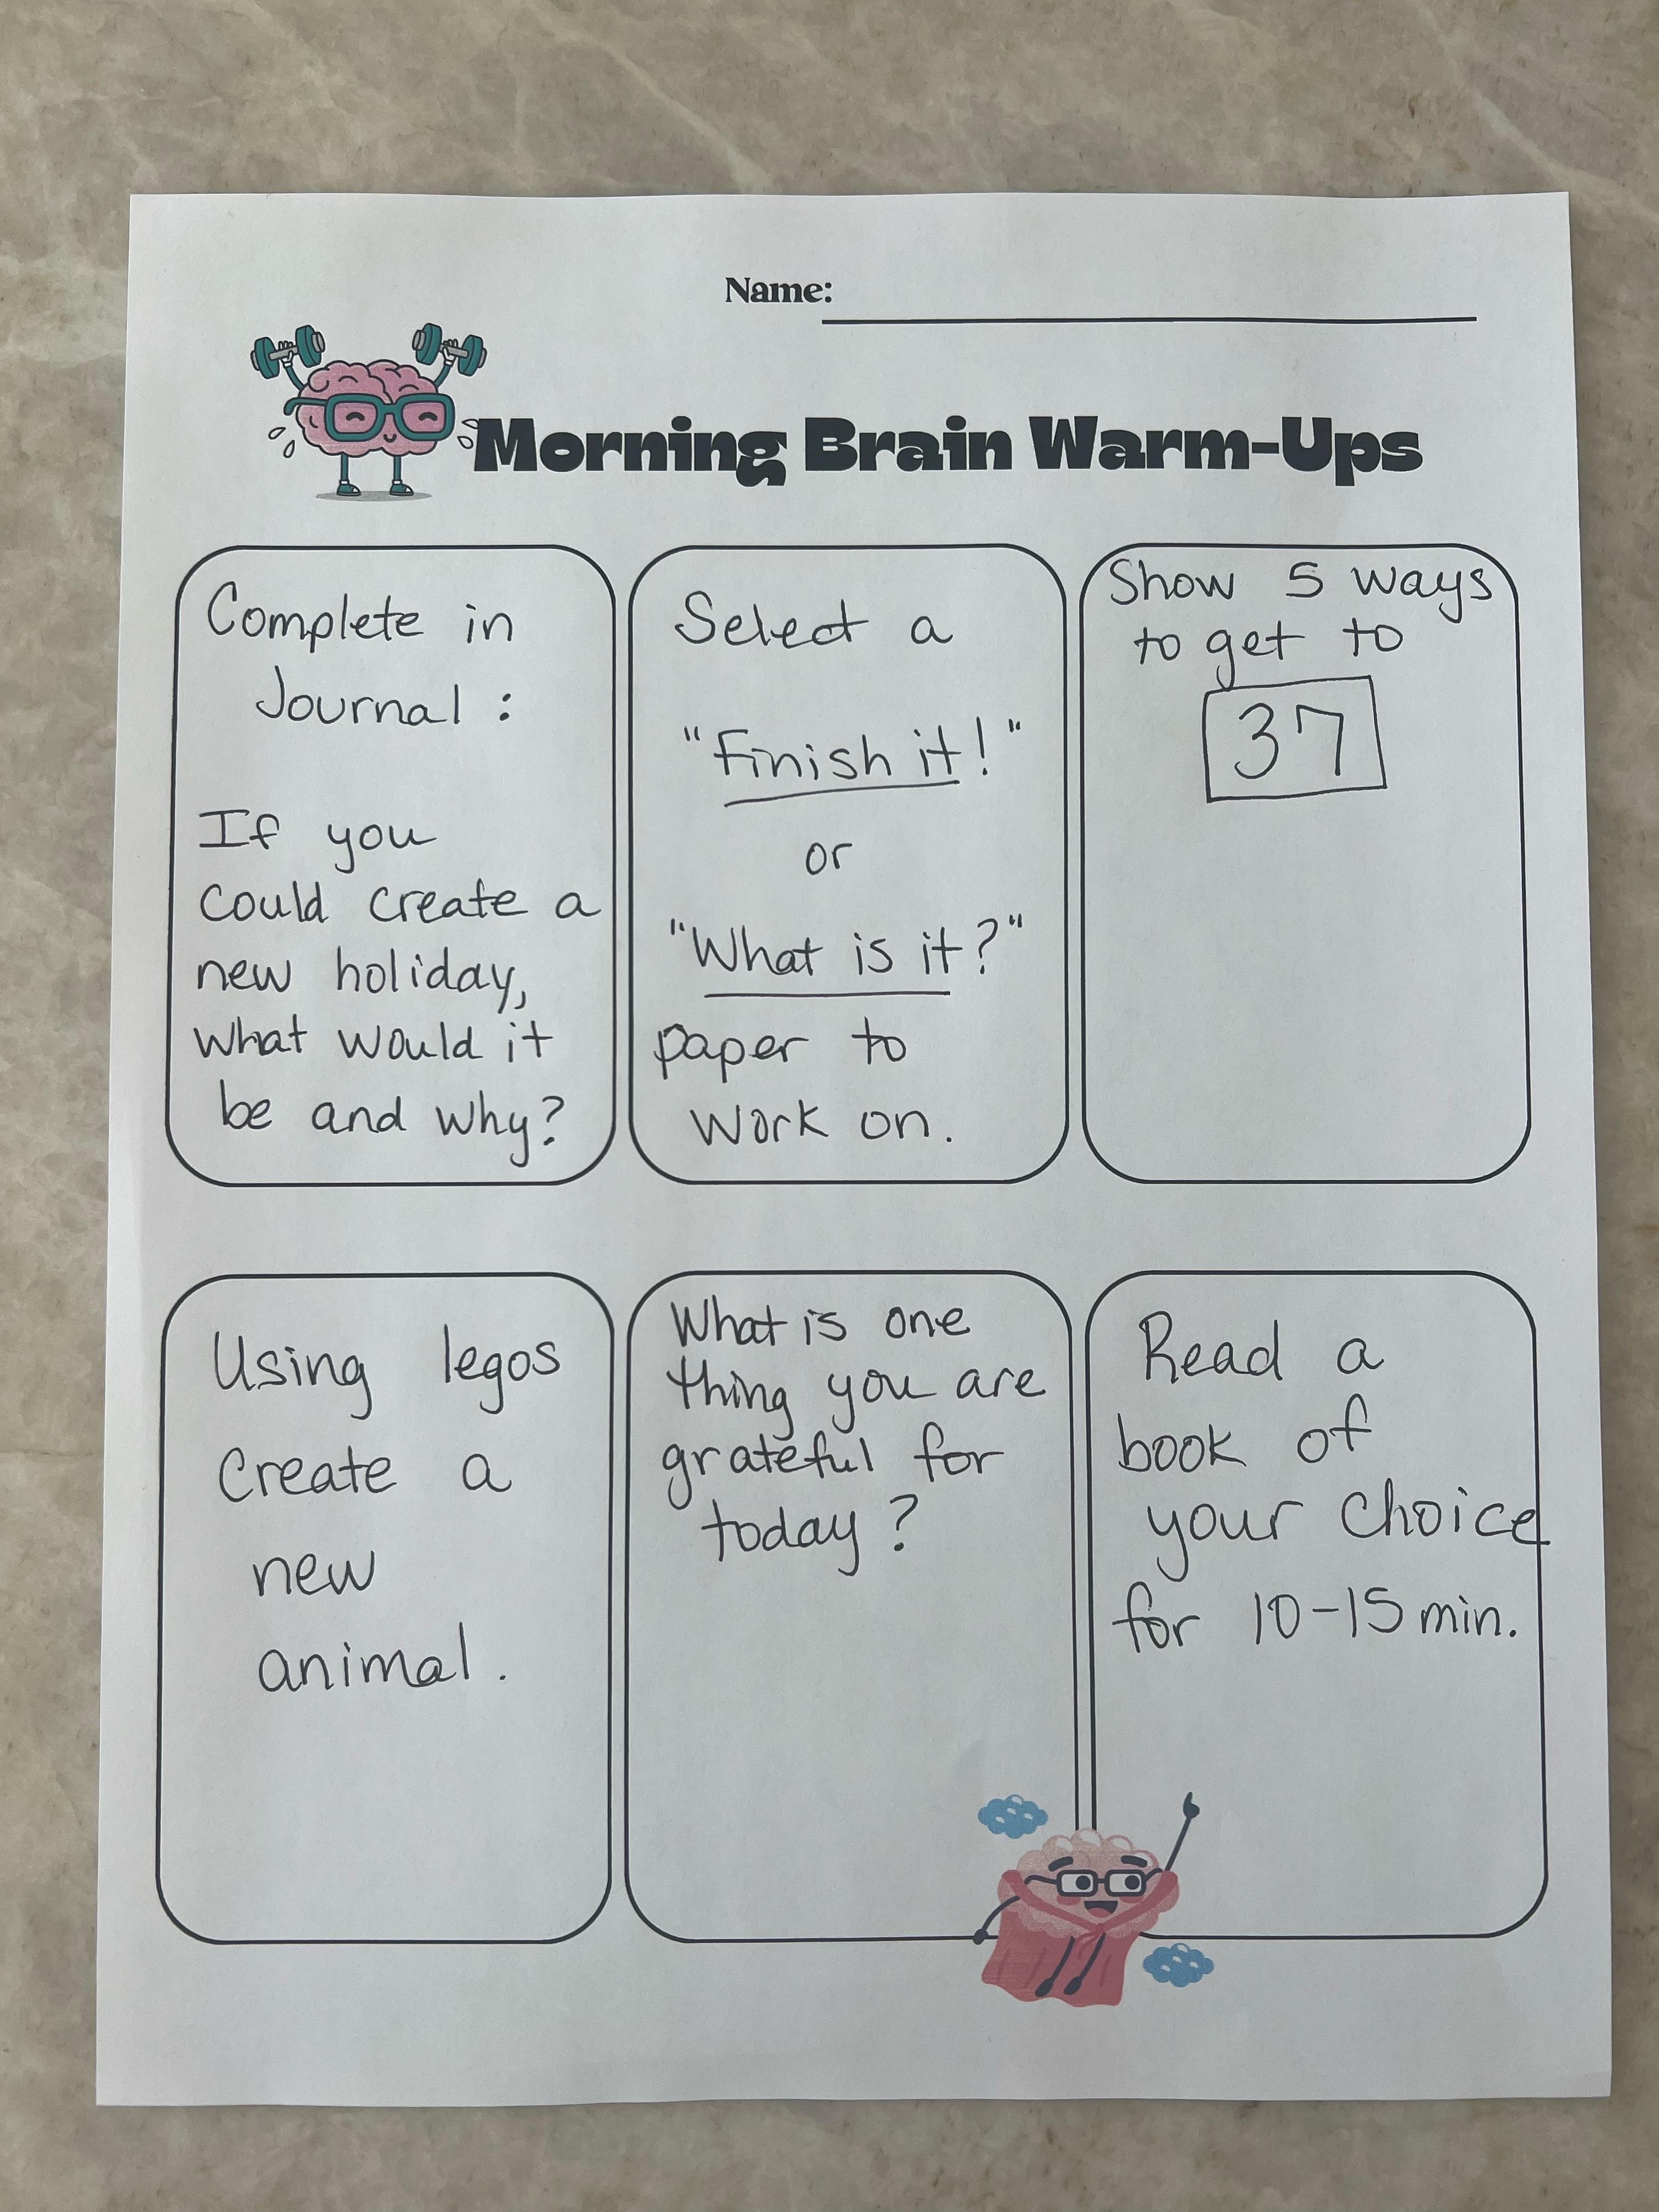 Name:
Morning Brain Warm-Ups
Complete in
Journal :
If you
could create a
new holiday,
what would it
be and why?
Select a
"Finish it!"
or
"What is it?"
paper to
work on.
Show 5 ways
to get to
37
Using legos
create a
new
animal.
What is one
thing you are
grateful for
today?
Read a
book of
your choice
for 10-15 min.